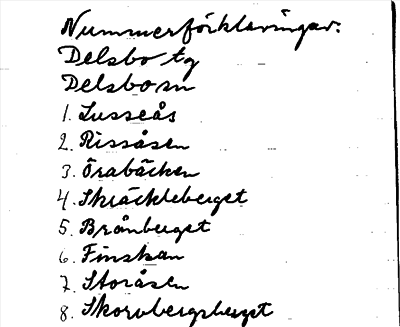 Nummerförklaringar.
Delsbo tg
Delsbo sn
1. Lusseås
2. Rissåsen
3. Örabäcken
4. Skräckleberget
5. Brånberget
6. Finskan
7. Storåsen
8. Skorvbergsberget